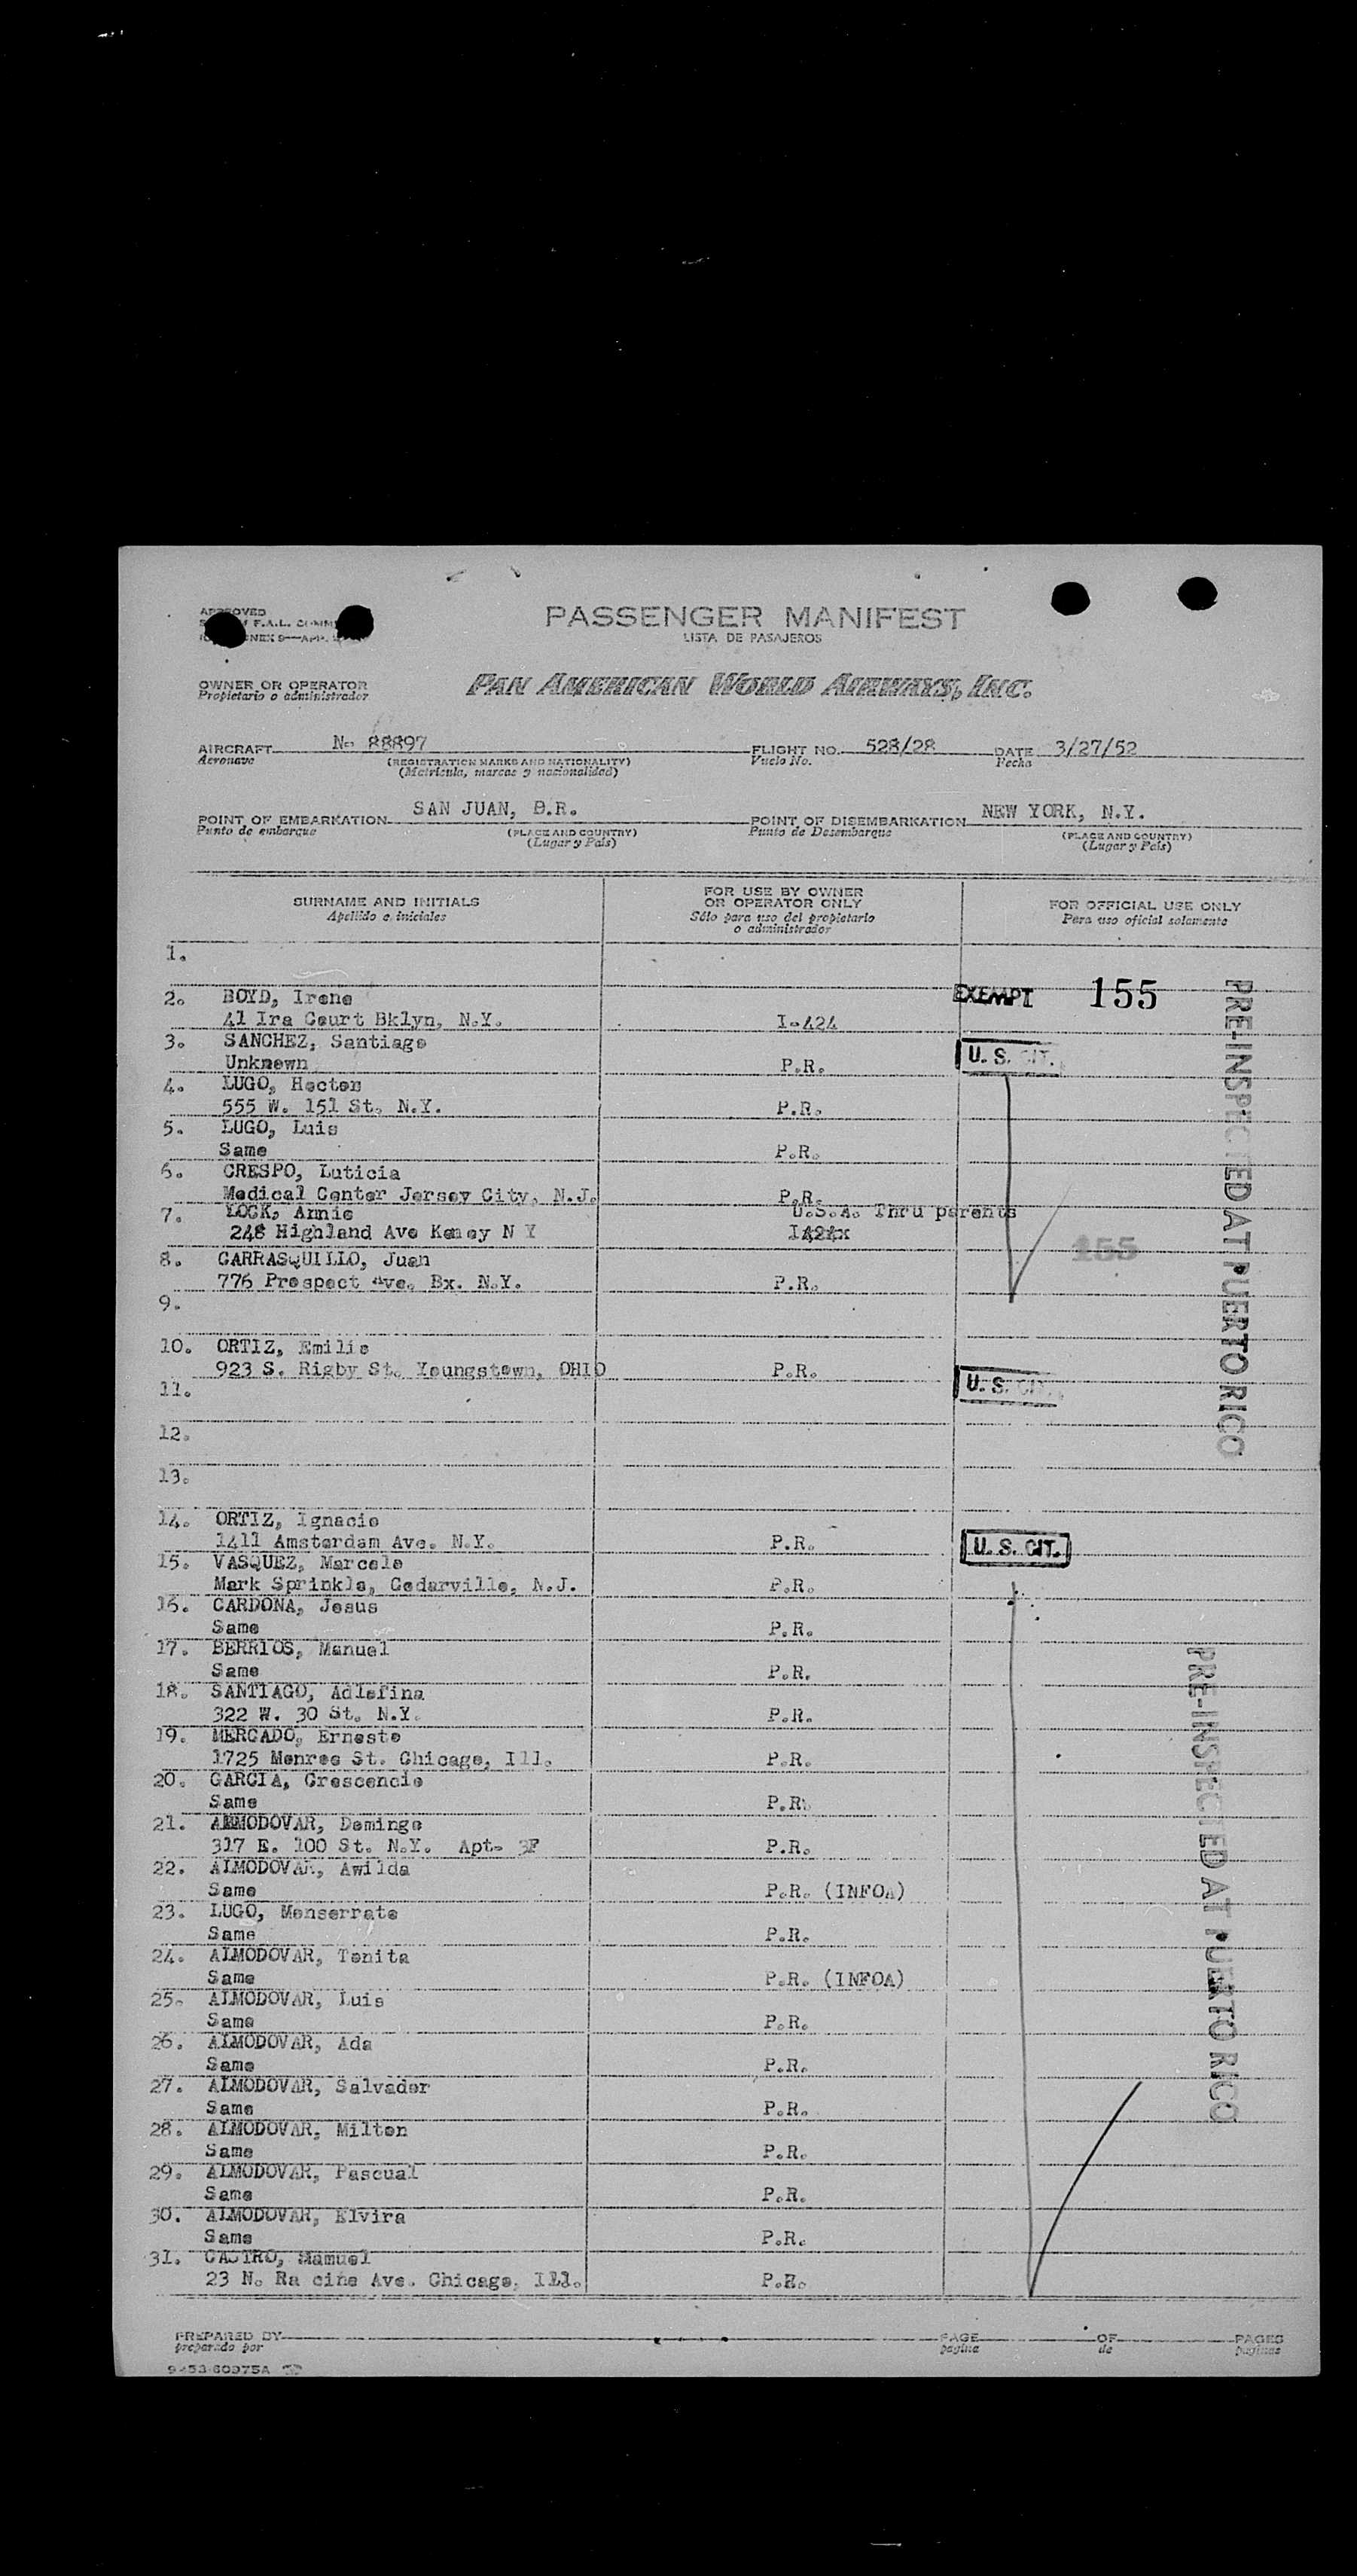 APPROVED
F.A.L. COMM
PASSENGER MANIFEST
LISTA DE PASAJEROS
OWNER OR OPERATOR
Propietario o administrador
PAN AMERICAN WORLD AIRWAYS, INC.
AIRCRAFT N- 88897 FLIGHT NO. 528/28 DATE 3/27/52
Aeronave (REGISTRATION MARKS AND NATIONALITY) Vuelo No. Fecha
(Matricula, marcas y nacionalidad)
POINT OF EMBARKATION SAN JUAN, P.R. POINT OF DISEMBARKATION NEW YORK, N.Y.
Punto de embarque (PLACE AND COUNTRY) Punto de Desembarque (PLACE AND COUNTRY)
(Lugar y País) (Lugar y País)
SURNAME AND INITIALS FOR USE BY OWNER OR OPERATOR ONLY FOR OFFICIAL USE ONLY
Apellido e iniciales Sólo para uso del propietario o administrador Para uso oficial solamente
1.
2. BOYD, Irene EXEMPT 155
41 Ira Court Bklyn, N.Y. I-424
3. SANCHEZ, Santiago U. S. CIT.
Unknown P.R.
4. LUGO, Hector
555 W. 151 St. N.Y. P.R.
5. LUGO, Luis
Same P.R.
6. CRESPO, Luticia
Medical Center Jersey City, N.J. P.R.
7. LOCK, Annie U.S.A. Thru parents
248 Highland Ave N Y 155
8. CARRASQUILLO, Juan
776 Prospect Ave. Bx. N.Y. P.R.
9.
10. ORTIZ, Emilio
923 S. Rigby St. Youngstown, OHIO P.R.
11. U. S. CIT.
12.
13.
14. ORTIZ, Ignacio
1411 Amsterdam Ave. N.Y. P.R. U. S. CIT.
15. VASQUEZ, Marcelo
Mark Sprinkle, Cedarville, N.J. P.R.
16. CARDONA, Jesus
Same P.R.
17. BERRIOS, Manuel
Same P.R.
18. SANTIAGO, Adlefina
322 W. 30 St. N.Y. P.R.
19. MERCADO, Ernesto
1725 Monroe St. Chicago, Ill. P.R.
20. GARCIA, Crescencio
Same P.R.
21. ALMODOVAR, Domingo
317 E. 100 St. N.Y. Apt- 3F P.R.
22. ALMODOVAR, Awilda
Same P.R. (INFOA)
23. LUGO, Monserrate
Same P.R.
24. ALMODOVAR, Tonita
Same P.R. (INFOA)
25. ALMODOVAR, Luis
Same P.R.
26. ALMODOVAR, Ada
Same P.R.
27. ALMODOVAR, Salvador
Same P.R.
28. ALMODOVAR, Milton
Same P.R.
29. ALMODOVAR, Pascual
Same P.R.
30. ALMODOVAR, Elvira
Same P.R.
31. CASTRO, Manuel
23 N. Ra cine Ave. Chicago, Ill. P.R.
PRE-INSPECTED AT PUERTO RICO
PRE-INSPECTED AT PUERTO RICO
PREPARED BY PAGE OF PAGES
preparado por pagina de paginas